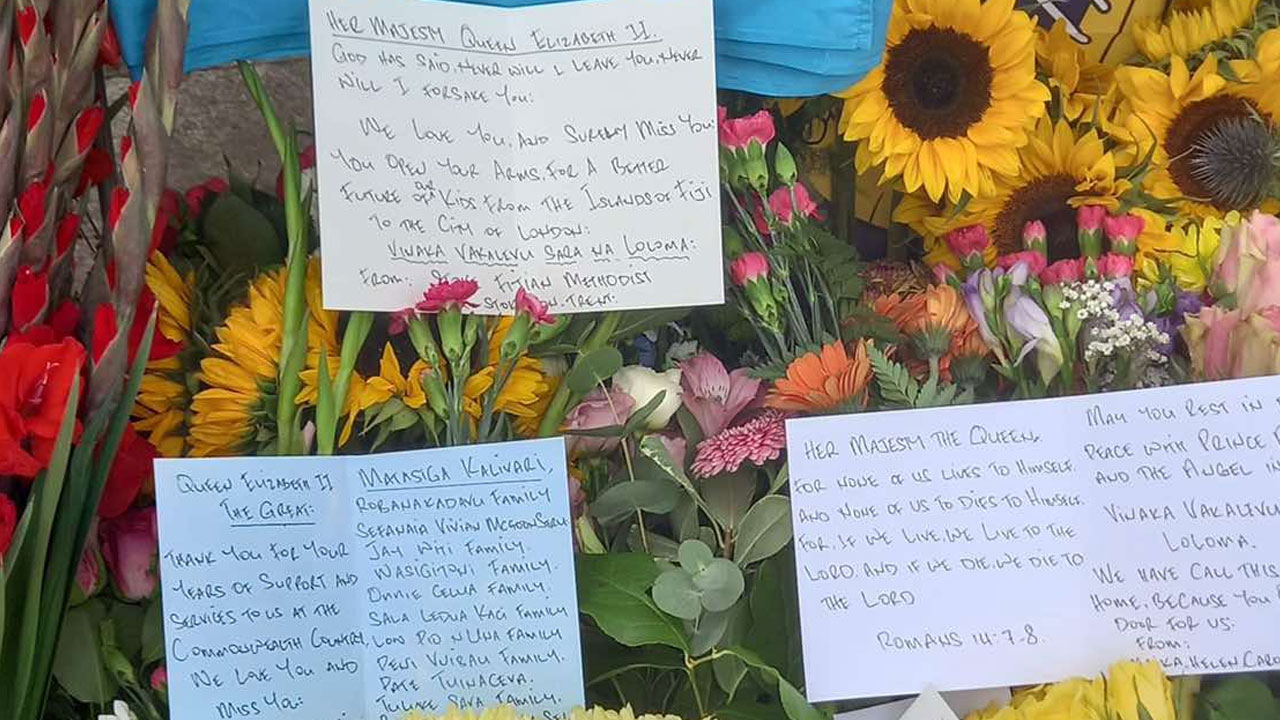 HER MAJESTY QUEEN ELIZABETH II.
GOD HAS SAID, NEVER WILL I LEAVE YOU, NEVER
WILL I FORSAKE YOU:
WE LOVE YOU, AND SURELY MISS YOU:
YOU OPEN YOUR ARMS, FOR A BETTER
FUTURE OF OUR KIDS FROM THE ISLANDS OF FIJI
TO THE CITY OF LONDON:
VINAKA VAKALEVU SARA NA LOLOMA:
FROM: FIJIAN METHODIST
TRENT.
QUEEN ELIZABETH II
THE GREAT:
THANK YOU FOR YOUR
YEARS OF SUPPORT AND
SERVICES TO US AT THE
COMMONWEALTH COUNTRY
WE LOVE YOU AND
MISS YOU:
MATASIGA KALIVARI,
ROBANAKADAVU FAMILY
SEFANAIA VIVIAN
JAY WITI FAMILY.
WASIGITONI FAMILY.
FAMILY.
SAVA LEDUA FAMILY
FAMILY
FAMILY.
PATE TUINACEVA.
SAVA FAMILY.
HER MAJESTY THE QUEEN,
FOR NONE OF US LIVES TO HIMSELF.
AND NONE OF US TO DIES TO HIMSELF.
FOR, IF WE LIVE, WE LIVE TO THE
LORD, AND IF WE DIE, WE DIE TO
THE LORD
ROMANS 14-7-8.
MAY YOU REST IN
PEACE WITH PRINCE
AND THE ANGEL IN
VINAKA VAKALEVU
LOLOMA.
WE HAVE CALL THIS
HOME, BECAUSE YOU
DOOR FOR US:
FROM:
HELEN